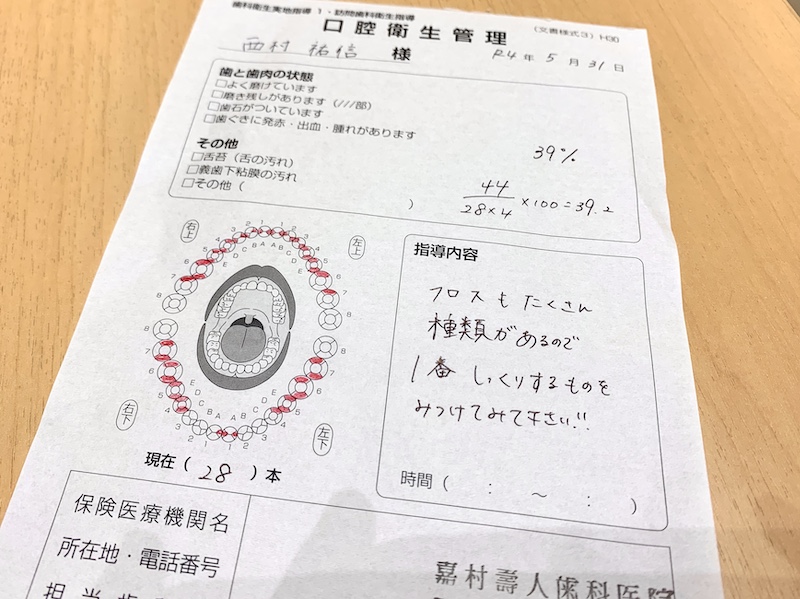 歯科衛生実地指導 1・訪問歯科衛生指導
(文書様式3) H30
口腔衛生管理
西村 祐信 様
R4年5月31日
歯と歯肉の状態
□よく磨けています
□磨き残しがあります (///部)
□歯石がついています
□歯ぐきに発赤・出血・腫れがあります
39%
その他
□舌苔 (舌の汚れ)
□義歯下粘膜の汚れ
□その他 ( )
44
28×4 ×100=39.2
右上
左上
8 7 6 5 4 3 2 1 1 2 3 4 5 6 7 8
E D C B A A B C D E
E D C B A A B C D E
8 7 6 5 4 3 2 1 1 2 3 4 5 6 7 8
右下
左下
現在 ( 28 ) 本
指導内容
フロスもたくさん
種類があるので
1番 しっくりするものを
みつけてみて下さい!!
時間 ( : ~ : )
保険医療機関名
所在地・電話番号
担当歯
嘉村壽人歯科医院